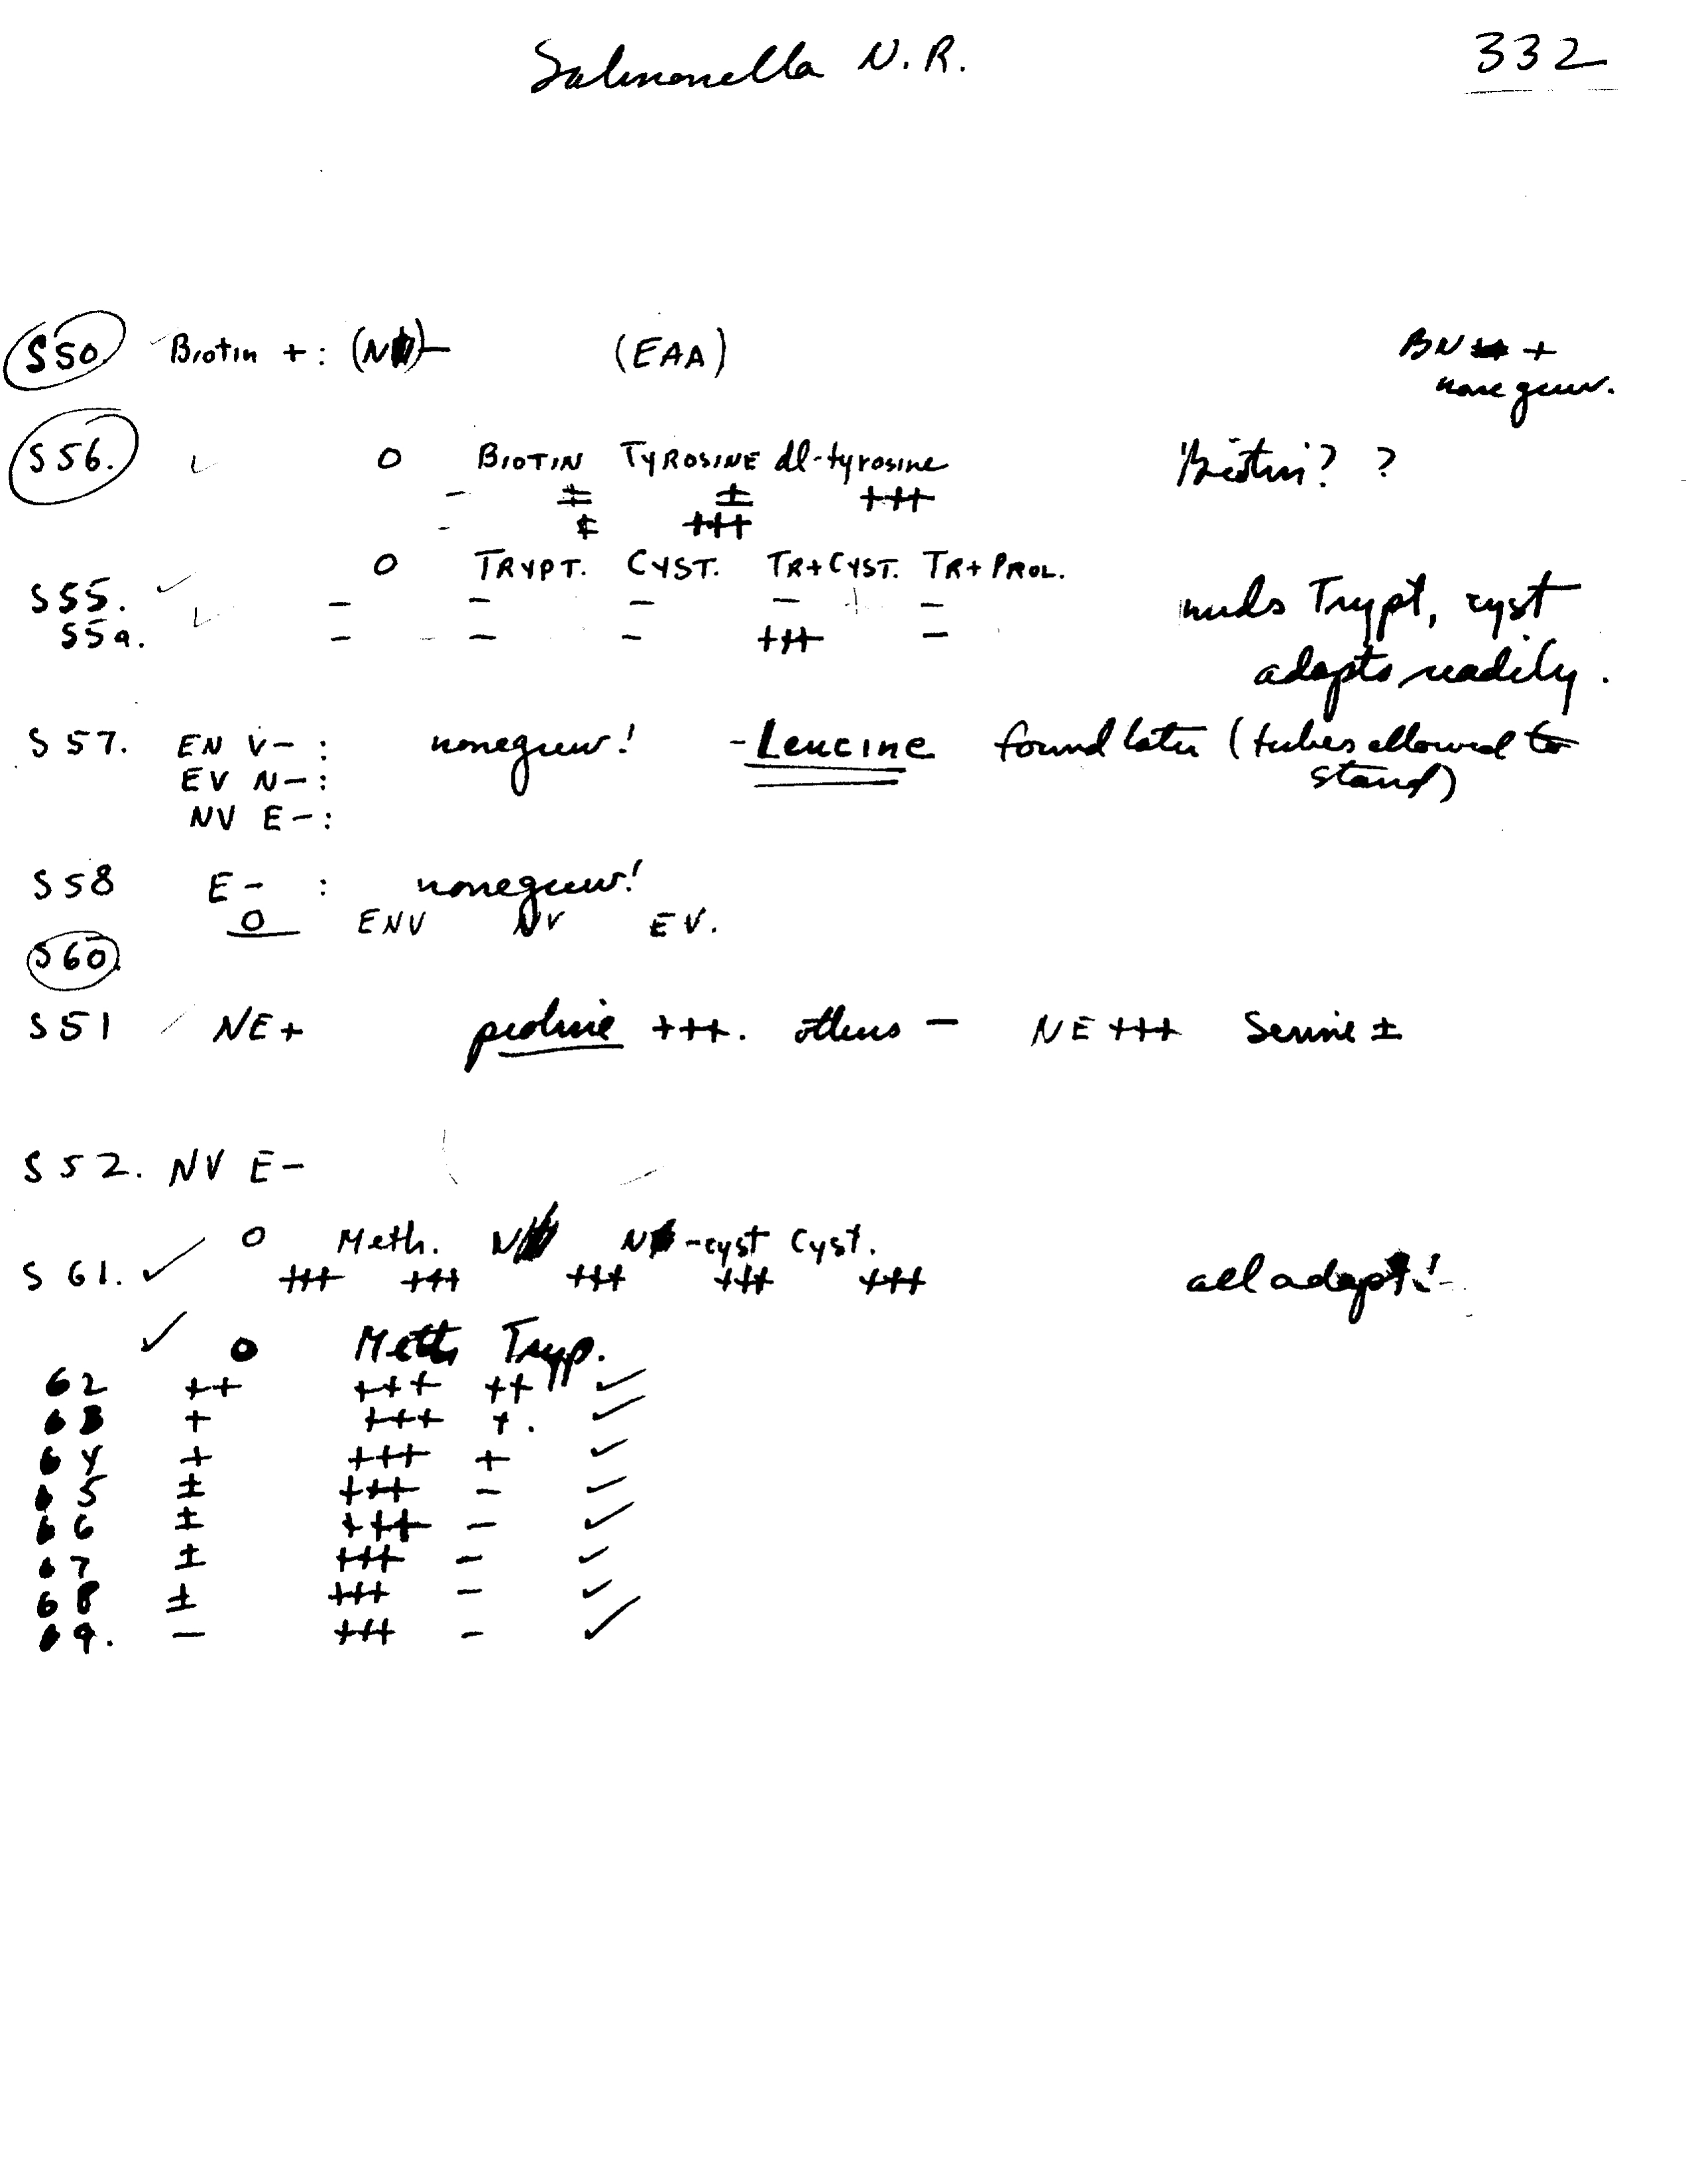 Salmonella N.R. 332
S50. Biotin + : (N )- (EAA) BN +
none grew.
S56. ✓ O BIOTIN TYROSINE dl-tyrosine Biotin? ?
- ± ± +++
- ± +++
O TRYPT. CYST. TR+CYST. TR+PROL.
S55. ✓ - - - - + - needs Trypt, cyst
S5a. ✓ - - - +++ - adapts readily.
S57. EN V- : none grew! - Leucine found later (tubes allowed to
EV N- : stand)
NV E- :
S58 E- : none grew!
O ENV NV EV.
S60.
S51 ✓ NE+ proline +++. others - NE +++ Serine ±
S52. NV E-
O Meth. N N -cyst Cyst.
S61. ✓ +++ +++ +++ +++ +++ all adapt!
✓ O Meth Tryp.
62 ++ +++ ++ ✓
63 + +++ +. ✓
64 + +++ + ✓
65 ± +++ - ✓
66 ± +++ - ✓
67 ± +++ - ✓
68 ± +++ - ✓
69. - +++ - ✓